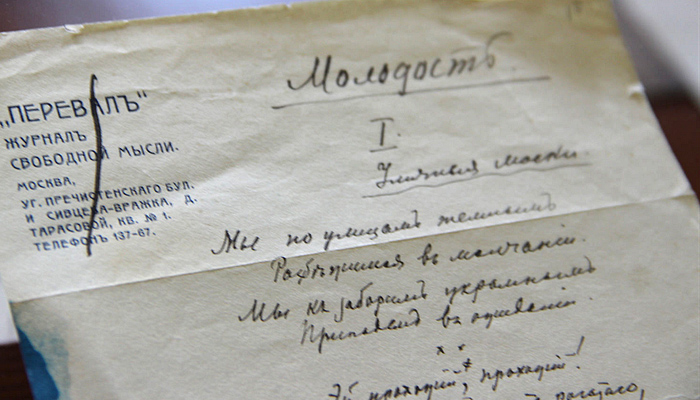 „ПЕРЕВАЛЪ“
ЖУРНАЛЪ
СВОБОДНОЙ МЫСЛИ.
МОСКВА,
УГ. ПРЕЧИСТЕНСКАГО БУЛ.
И СИВЦЕВА-ВРАЖКА, Д.
ТАРАСОВОЙ, КВ. № 1.
ТЕЛЕФОНЪ 137-67.
Молодость.
I.
Мы по улицамъ темнымъ
Разбѣжимся въ молчаніи.
Мы къ заборамъ укромнымъ
Припадемъ въ ожиданіи.
Эй прохожій, прохожій!